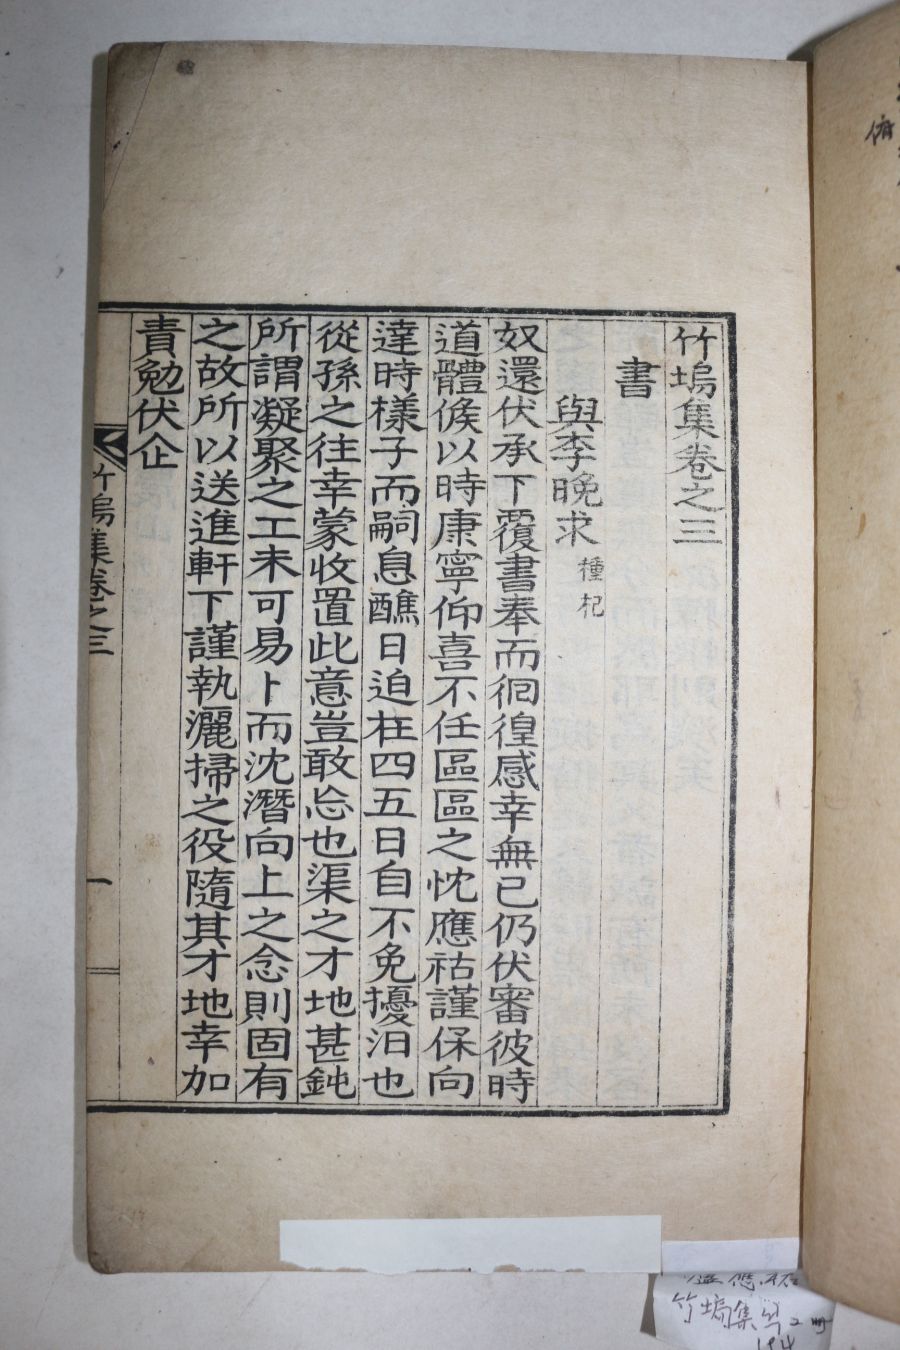 竹塢集卷之三
書
與李晩求 種杞
奴還伏承下覆書奉而徊徨感幸無已仍伏審彼時
道體候以時康寧仰喜不任區區之忱應祜謹保向
達時樣子而嗣息醮日迫在四五日自不免擾汨也
從孫之往幸蒙收置此意豈敢忘也渠之才地甚鈍
所謂凝聚之工未可易卜而沈潛向上之念則固有
之故所以送進軒下謹執灑掃之役隨其才地幸加
責勉伏企
竹塢集卷之三
一
竹塢集